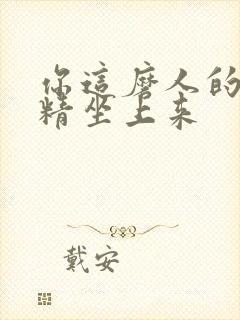 你這磨人的
精坐上来
戴安